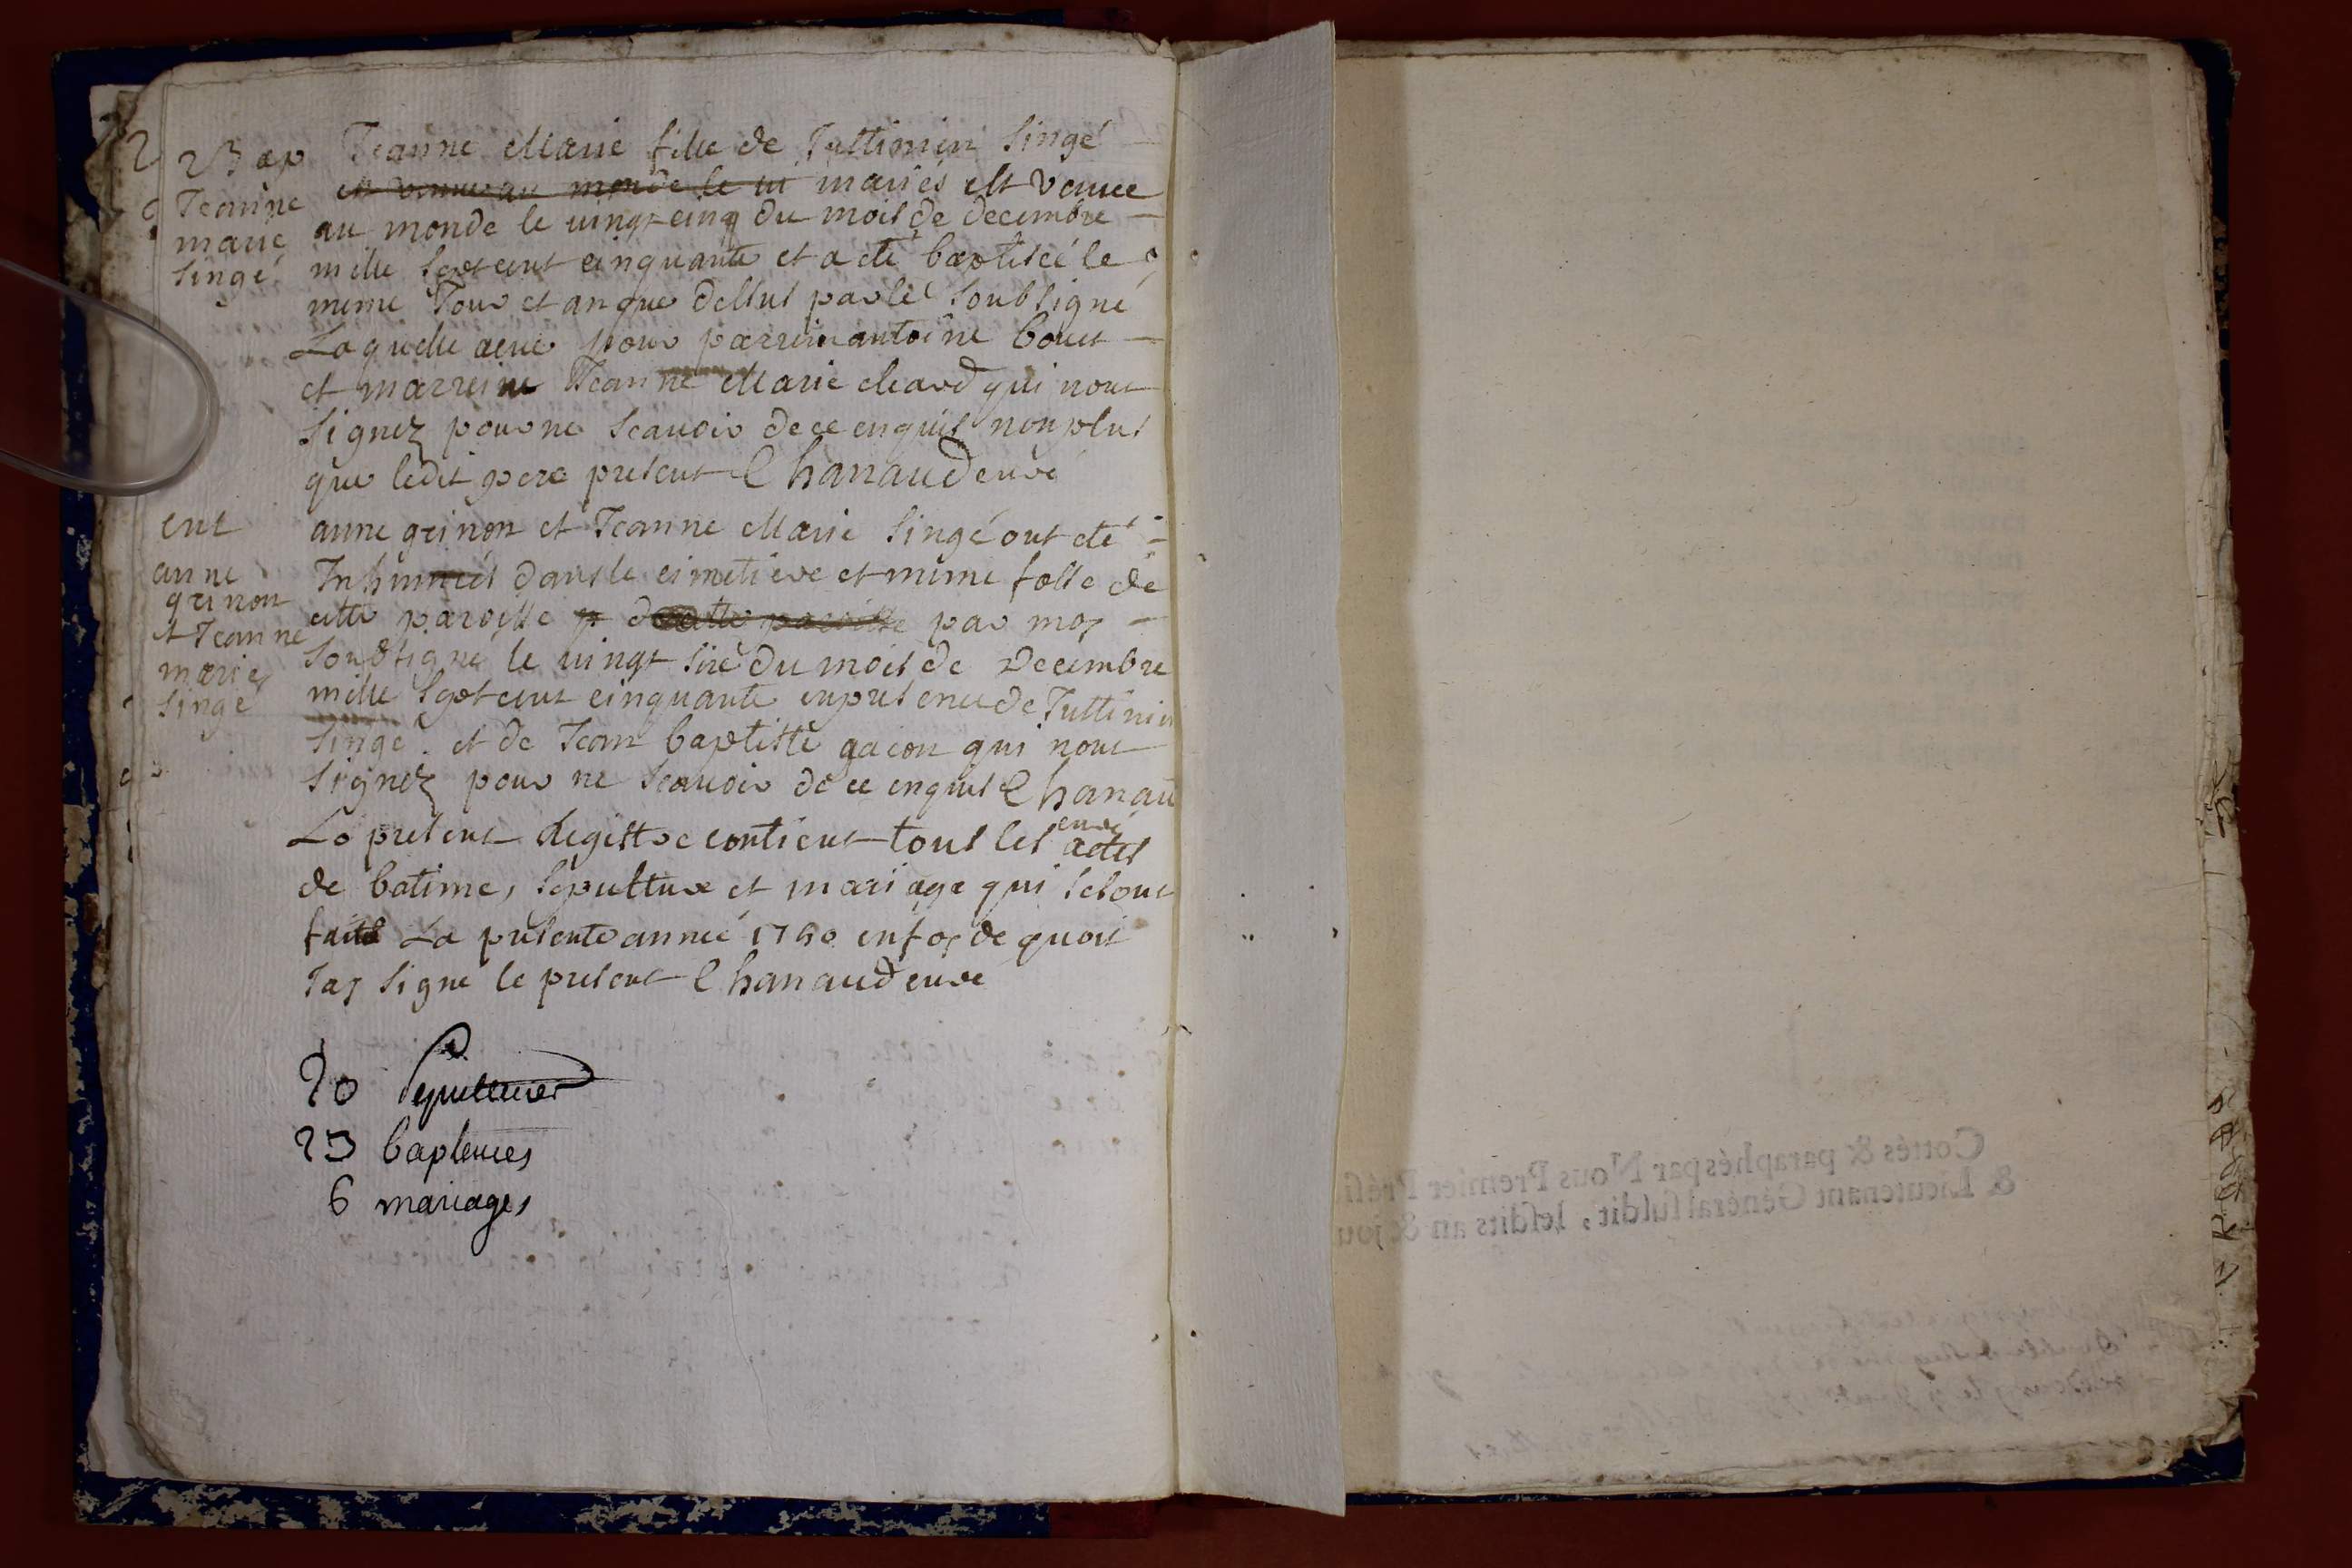 Bap
Jeanne
marie
Singé
Jeanne Marie fille de Juttinien Singé
est venue au monde le vi mariés est venue
au monde le vingt cinq du mois de decembre
mille sept cent cinquante et a eté baptisée le
meme Jour et an que dessus par le soubsigné
Laquelle a eue pour parrein antoine bouet
et marreine Jeanne Marie cleard qui nont
signez pour ne scauoir de ce enquis non plus
que ledit pere present Chanaud curé
ent
anne
grinon
et Jeanne
marie
Singé
anne grinon et Jeanne Marie Singé ont eté
Inhumées dans le cimetiere et meme fosse de
cette paroisse par moy
soubsigné le vingt sixe du mois de Decembre
mille sept cent cinquante en presence de Juttinien
Singé et de Jean baptiste gacon qui nont
signez pour ne scauoir de ce enquis Chanau
curé
Le present Regittre contient tous les actes
de batime, sepulture et mariage qui se sont
faits La presente année 1750 en foy de quoit
Jay signé le present Chanaud curé
20 Sepultures
23 baptemes
6 mariages
Cottés & paraphés par Nous Premier Présï
& Lieutenant Général susdit, lesdits an & jou